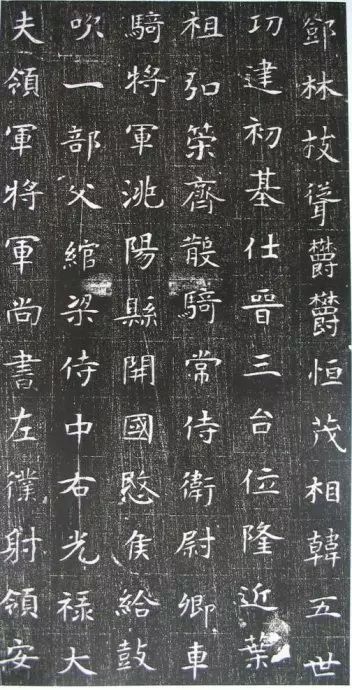 鄧林技聳欝欝恒茂相韓五世
功建初基仕晉三台位隆近葉
祖弘策齊散騎常侍衛尉卿車
騎將軍洮陽縣開國愍侯給鼓
吹一部父綰梁侍中右光禄大
夫領軍將軍尚書左僕射領安